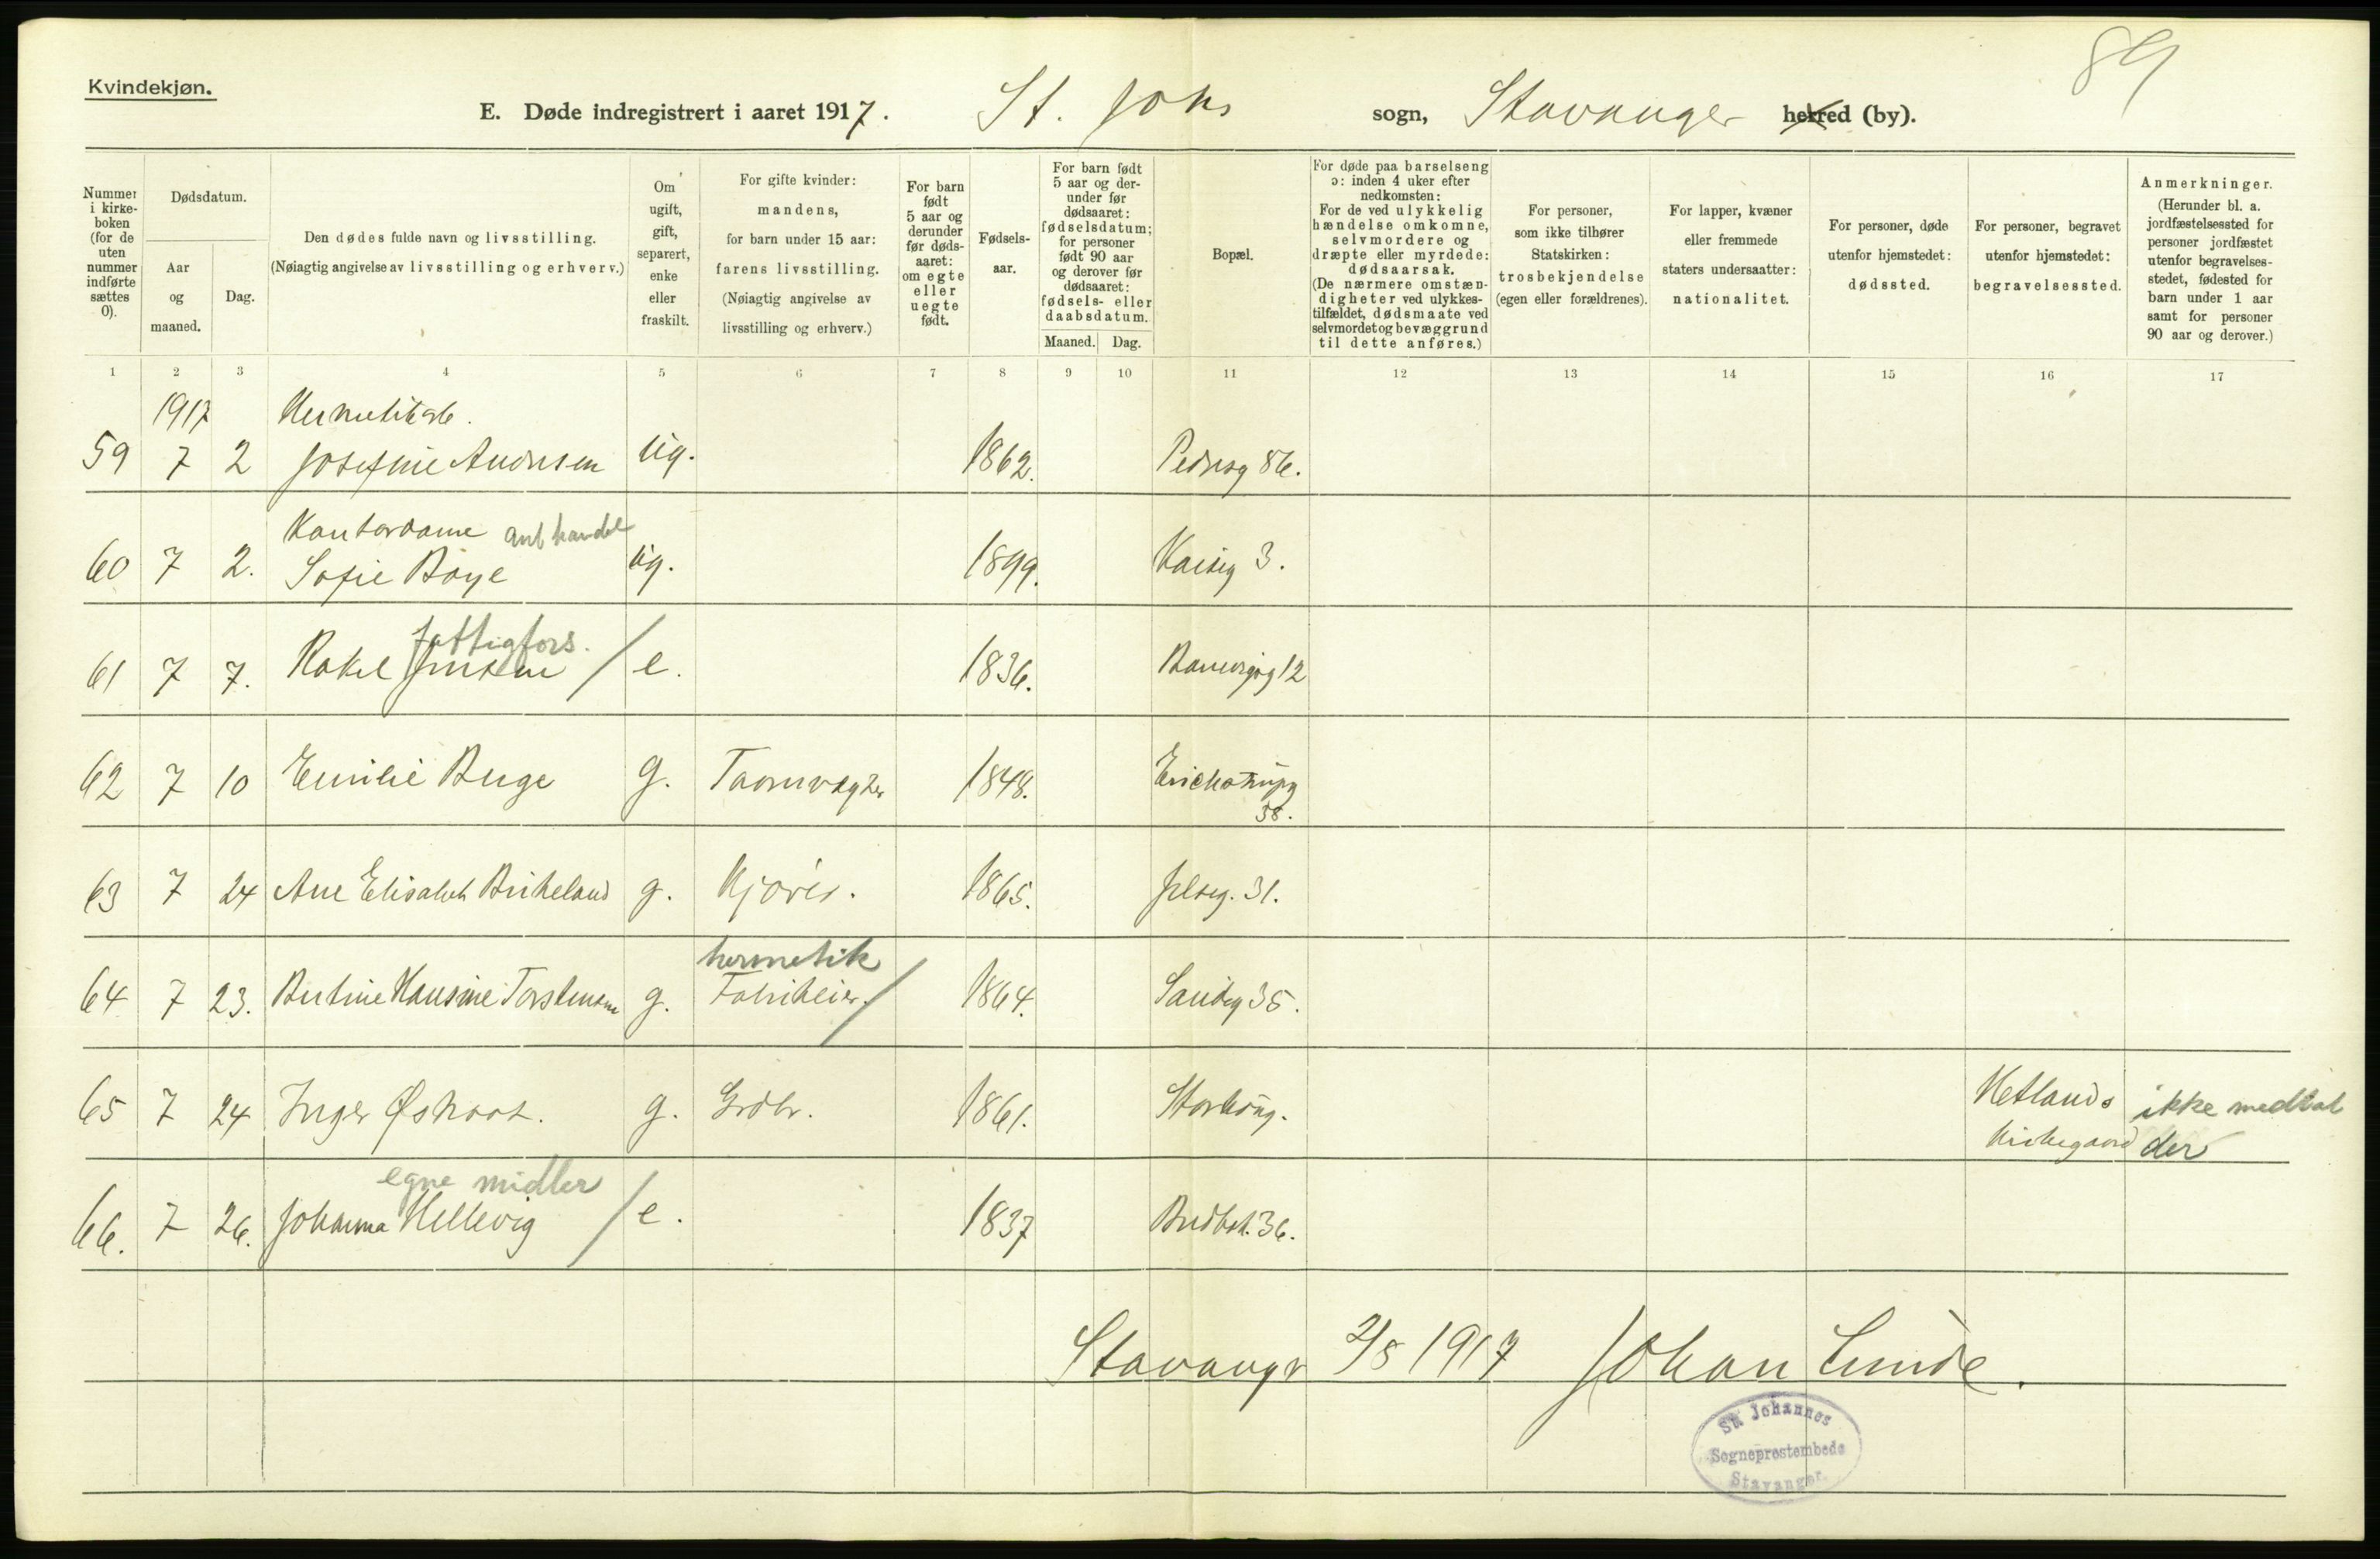 89
Kvindekjøn.
E. Døde indregistrert i aaret 1917. St. Johs sogn, Stavanger herred (by).
Nummer i kirkeboken (for de uten nummer indførte sættes 0).
Dødsdatum.
Aar og maaned.
Dag.
Den dødes fulde navn og livsstilling.
(Nøiagtig angivelse av livsstilling og erhverv.)
Om ugift, gift, separert, enke eller fraskilt.
For gifte kvinder: mandens, for barn under 15 aar: farens livsstilling. (Nøiagtig angivelse av livsstilling og erhverv.)
For barn født 5 aar og derunder før dødsaaret: om egte eller uegte født.
Fødselsaar.
For barn født 5 aar og derunder før dødsaaret: fødselsdatum; for personer født 90 aar og derover før dødsaaret: fødsels- eller daabsdatum.
Maaned. Dag.
Bopæl.
For døde paa barselseng ɔ: inden 4 uker efter nedkomsten: For de ved ulykkelig hændelse omkomne, selvmordere og dræpte eller myrdede: dødsaarsak. (De nærmere omstændigheter ved ulykkestilfældet, dødsmaate ved selvmordet og bevæggrund til dette anføres.)
For personer, som ikke tilhører Statskirken: trosbekjendelse (egen eller forældrenes).
For lapper, kvæner eller fremmede staters undersaatter: nationalitet.
For personer, døde utenfor hjemstedet: dødssted.
For personer, begravet utenfor hjemstedet: begravelsessted.
Anmerkninger. (Herunder bl. a. jordfæstelsessted for personer jordfæstet utenfor begravelsesstedet, fødested for barn under 1 aar samt for personer 90 aar og derover.)
1 2 3 4 5 6 7 8 9 10 11 12 13 14 15 16 17
1917
59 7 2 Josefine Andresen ug. 1862. Pedersg 86.
Kontordame
60 7 2. Sofie Bøye ug. 1899. 3.
fattigfors.
61 7 7. Rakel Jensen / e. 1836. 12
62 7 10 Emilie Buge g. Taarnvægter 1848.
38.
63 7 24 Ane Elisabet Birkeland g. Kjøren. 1865. Jelsag. 31.
hermetik
64 7 23. Bertine Hansine Torstensen g. Fabrikeier. / 1864. Sandeg 35.
65 7 24 Inger g. Grdbr. 1861. Storhaug. Hetlands ikke medtat
kirkegaard der
egne midler
66. 7 26. Johanna Hellevig / e. 1837 Bredbak. 36.
Stavanger 2/8 1917 Johan Lunde.
St. Johannes
Sogneprestembede
Stavanger.